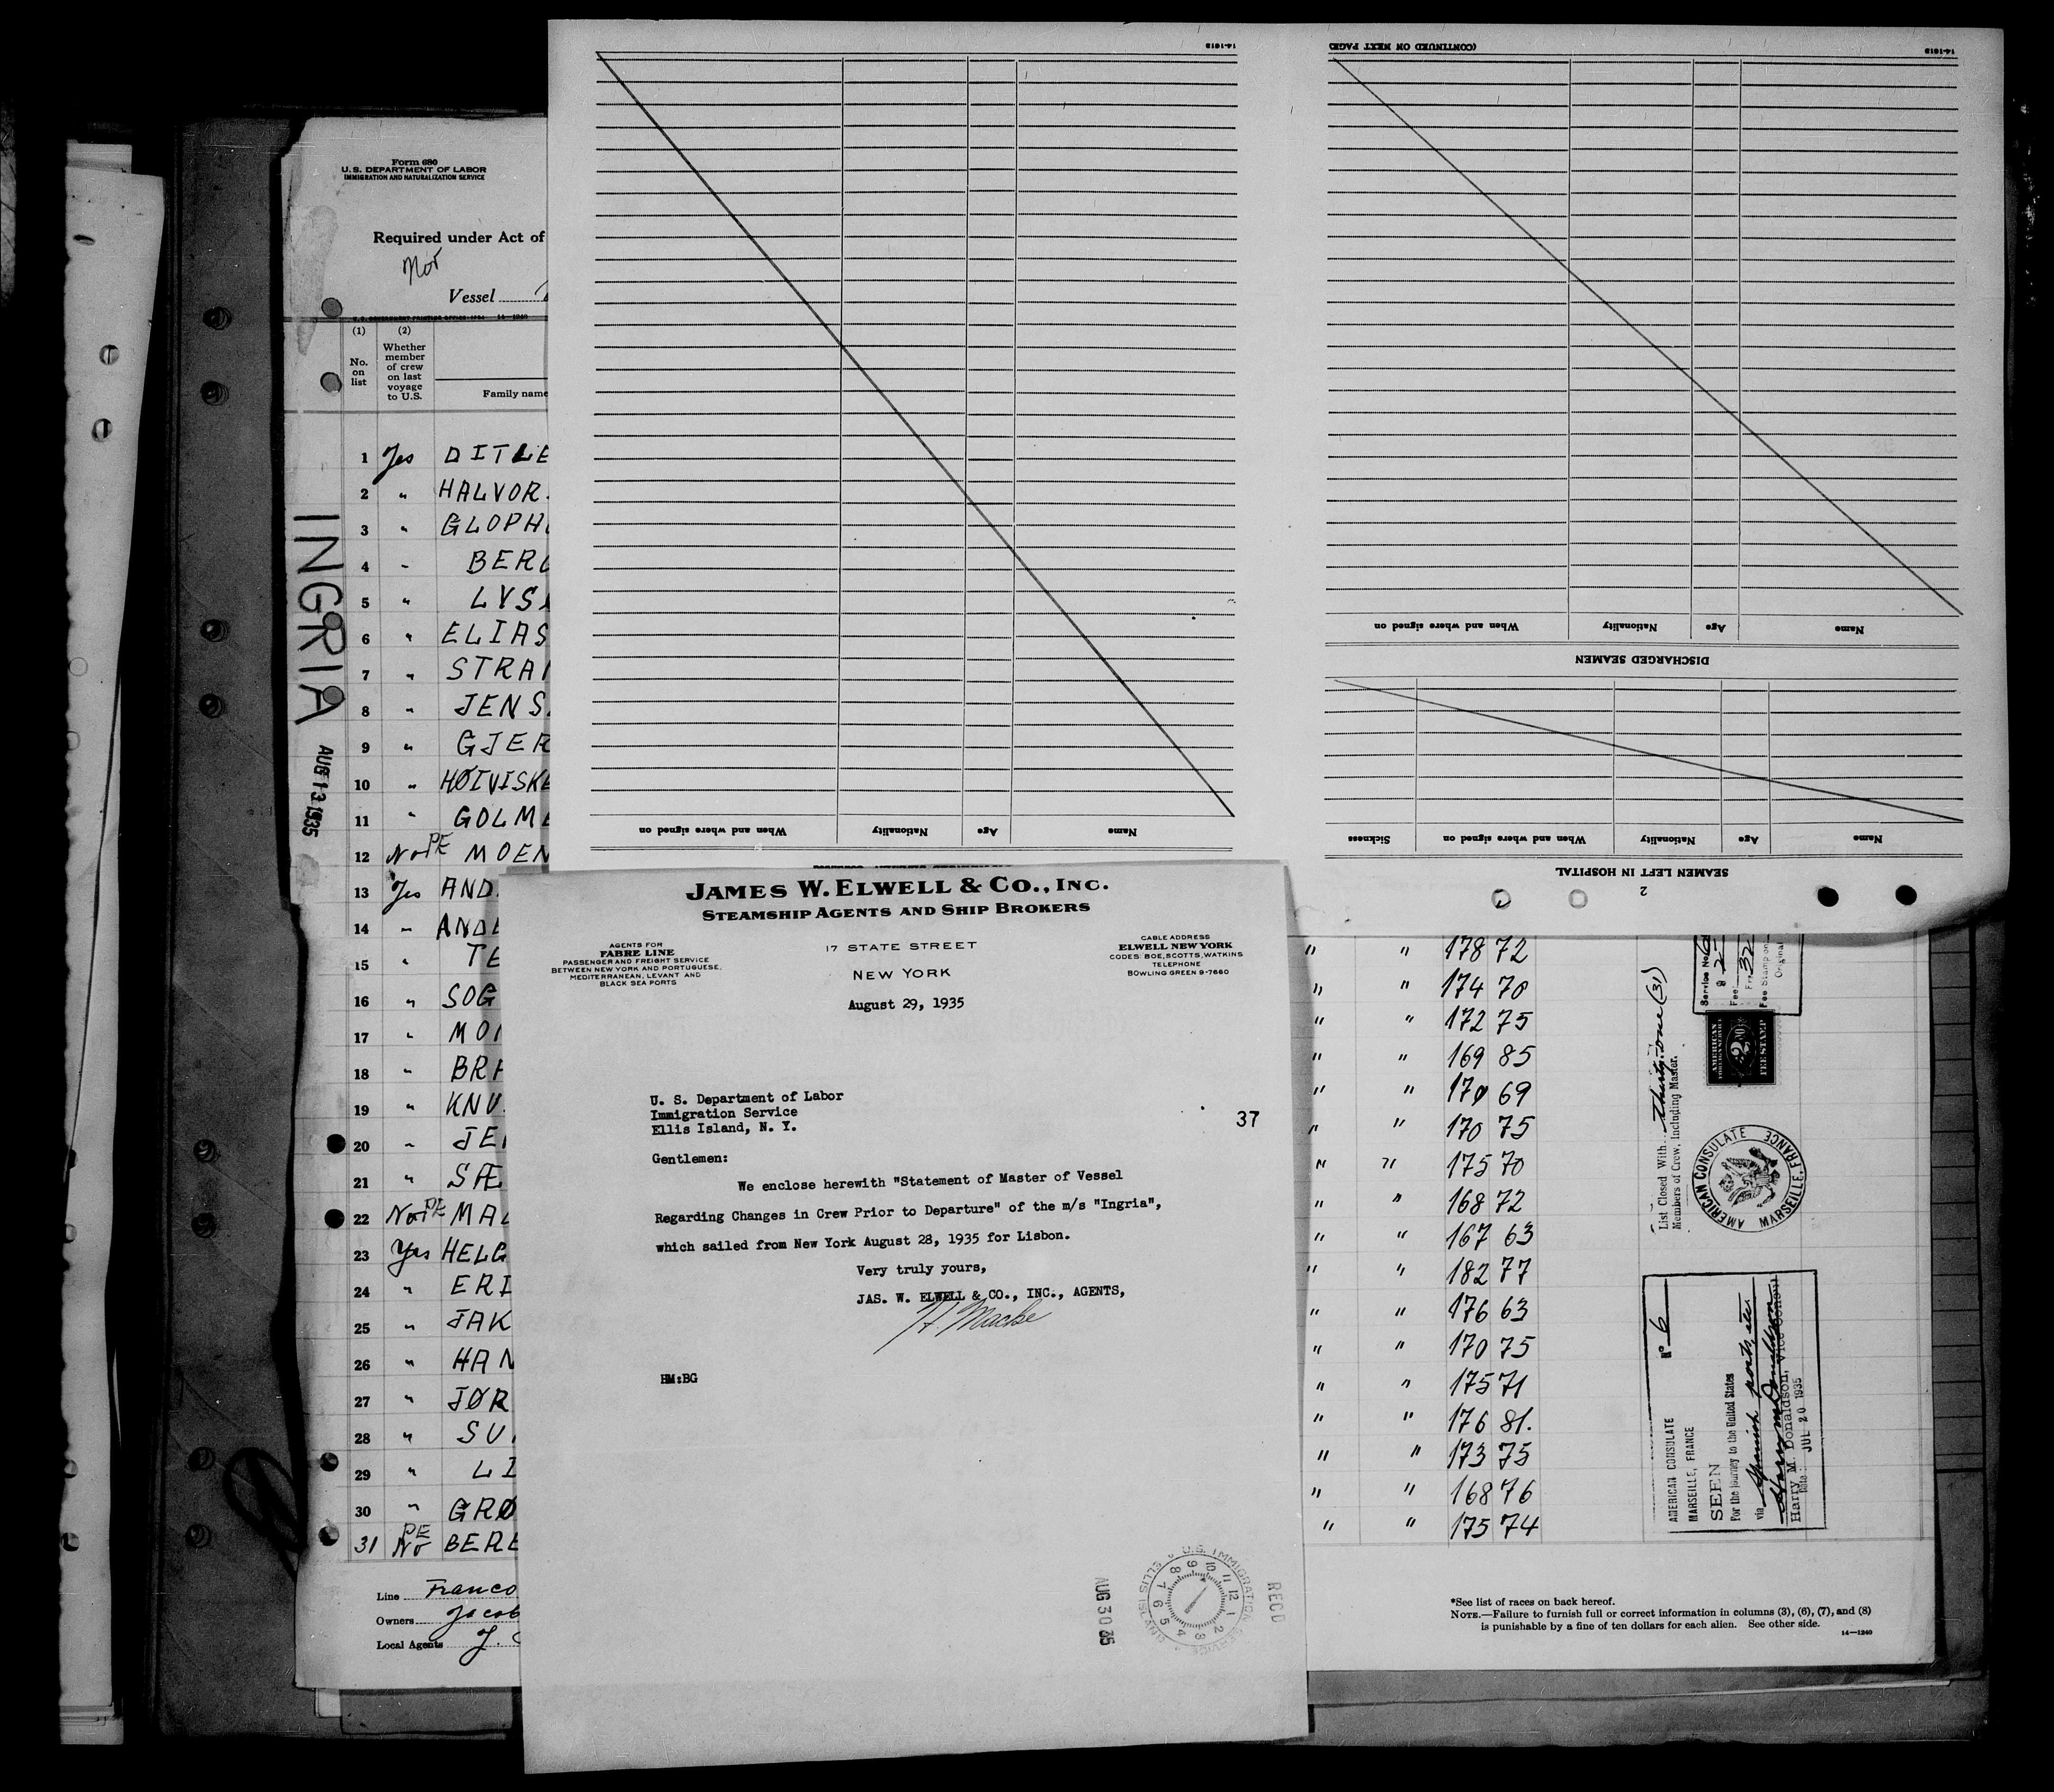 14-1613
(CONTINUED ON NEXT PAGE)
14-1613
Form 680
U. S. DEPARTMENT OF LABOR
IMMIGRATION AND NATURALIZATION SERVICE
Required under Act of
Nor
Vessel
U. S. GOVERNMENT PRINTING OFFICE: 1934 14-1240
(1) (2)
No. on list
Whether member of crew on last voyage to U.S.
Family name
1 Yes DITLE
2 " HALVOR
3 " GLOPH
4 - BER
5 " LYS
6 " ELIAS
7 " STRA
8 " JENS
9 " GJER
10 " HØIVISK
11 " GOLM
12 No PE MOEN
13 Yes AND
14 - AND
15 " TE
16 " SOG
17 " MO
18 " BR
19 " KNU
20 - JE
21 " SÆ
22 No PE MA
23 Yes HELG
24 " ERI
25 " JAK
26 " HAN
27 " JØR
28 " SU
29 " LI
30 " GRØ
31 PE No BERE
INGRIA
AUG 13 1935
Line Franco
Owners Jacob
Local Agents J.
When and where signed on Nationality Age Name
When and where signed on Nationality Age Name
DISCHARGED SEAMEN
Sickness When and where signed on Nationality Age Name
SEAMEN LEFT IN HOSPITAL
2
JAMES W. ELWELL & CO., INC.
STEAMSHIP AGENTS AND SHIP BROKERS
AGENTS FOR
FABRE LINE
PASSENGER AND FREIGHT SERVICE
BETWEEN NEW YORK AND PORTUGUESE,
MEDITERRANEAN, LEVANT AND
BLACK SEA PORTS
17 STATE STREET
NEW YORK
CABLE ADDRESS
ELWELL NEW YORK
CODES: BOE, SCOTTS, WATKINS
TELEPHONE
BOWLING GREEN 9-7660
August 29, 1935
U. S. Department of Labor
Immigration Service
Ellis Island, N. Y.
37
Gentlemen:
We enclose herewith "Statement of Master of Vessel
Regarding Changes in Crew Prior to Departure" of the m/s "Ingria",
which sailed from New York August 28, 1935 for Lisbon.
Very truly yours,
JAS. W. ELWELL & CO., INC., AGENTS,
H Macke
HM:BG
REC'D
U.S. IMMIGRATION SERVICE
ELLIS ISLAND N.Y.
AUG 30 35
" " 178 72
" " 174 70
" " 172 75
" " 169 85
" " 170 69
" " 170 75
" " 175 70
" " 168 72
" " 167 63
" " 182 77
" " 176 63
" " 170 75
" " 175 71
" " 176 81.
" " 173 75
" " 168 76
" " 175 74
List Closed With thirty-one (31)
Members of Crew, Including Master.
Service No.
Fee
Fee Stamp on
Original
AMERICAN
FOREIGN SERVICE
$2.00
FEE STAMP
AMERICAN CONSULATE
MARSEILLE, FRANCE
Nº 6
AMERICAN CONSULATE
MARSEILLE, FRANCE
SEEN
For the journey to the United States
via Spanish ports, etc.
Harry M Donaldson
Harry M. Donaldson, Vice Consul
Date: JUL 20 1935
*See list of races on back hereof.
NOTE.—Failure to furnish full or correct information in columns (3), (6), (7), and (8)
is punishable by a fine of ten dollars for each alien. See other side.
14—1240